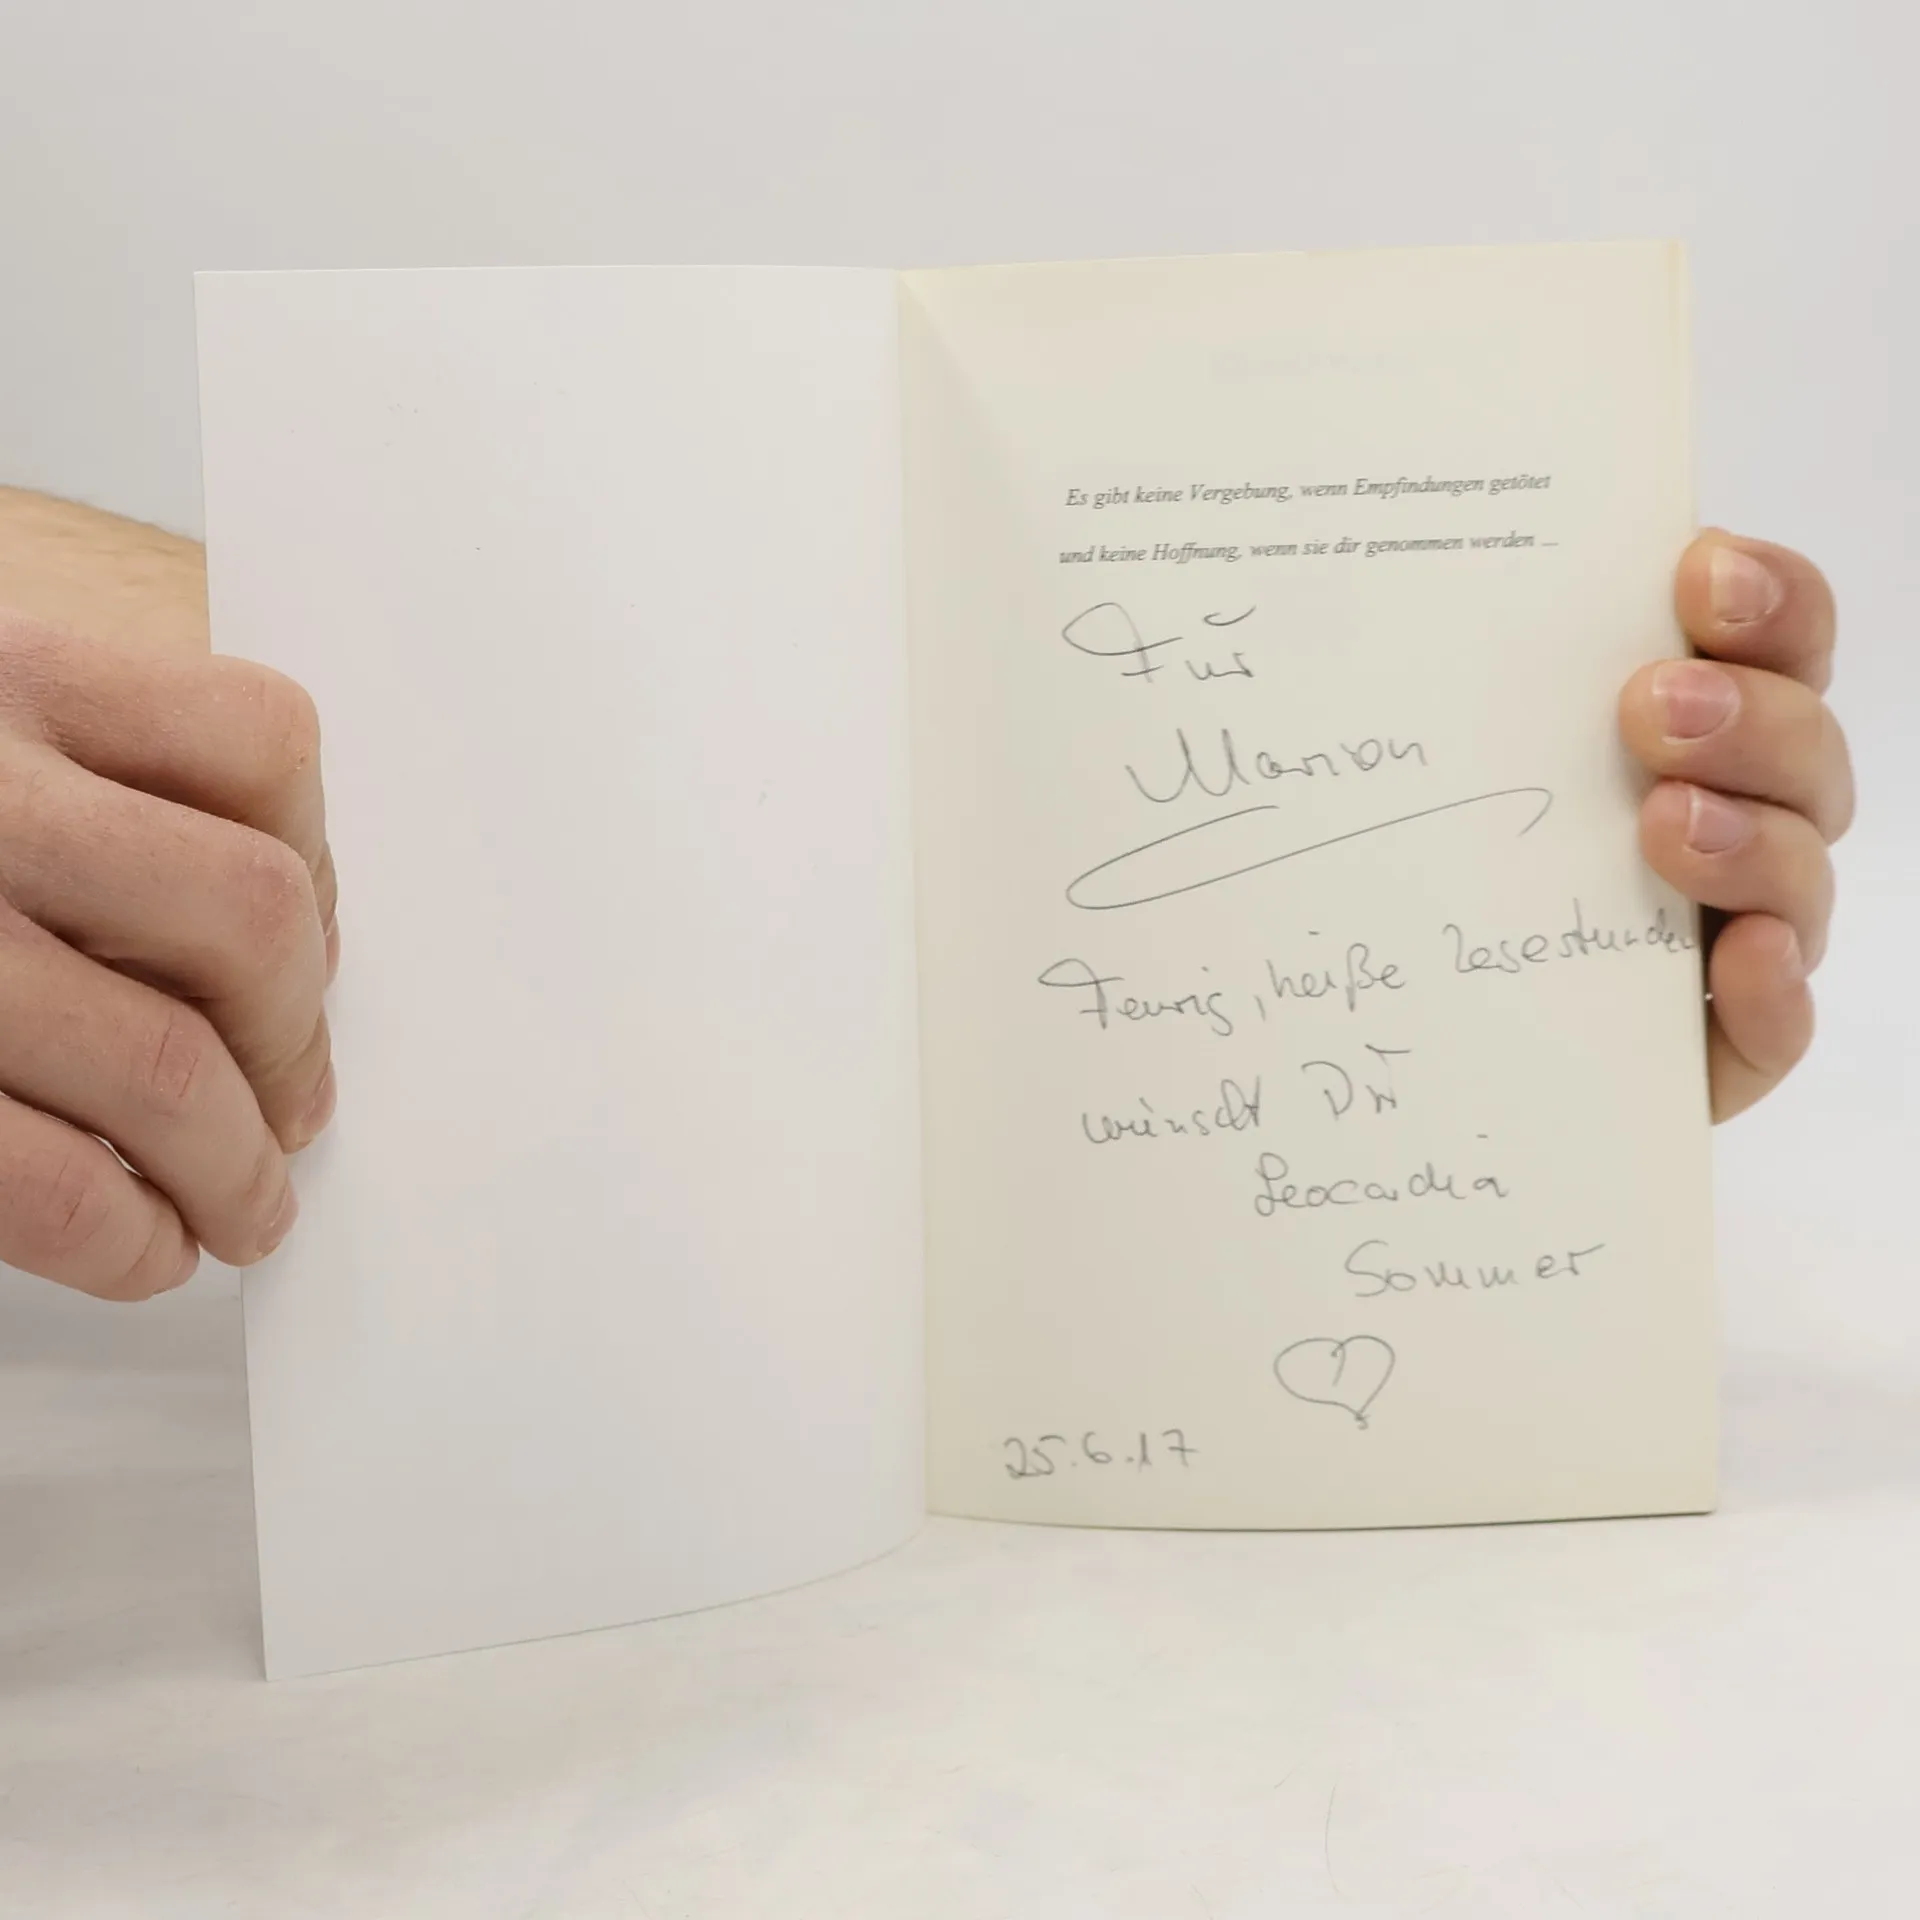 Es gibt keine Vergebung, wenn Empfindungen getötet
und keine Hoffnung, wenn sie dir genommen werden ...
Für
Marion
Feurig, heiße Lesestunden
wünscht Dir
Leocardia
Sommer
25.6.17